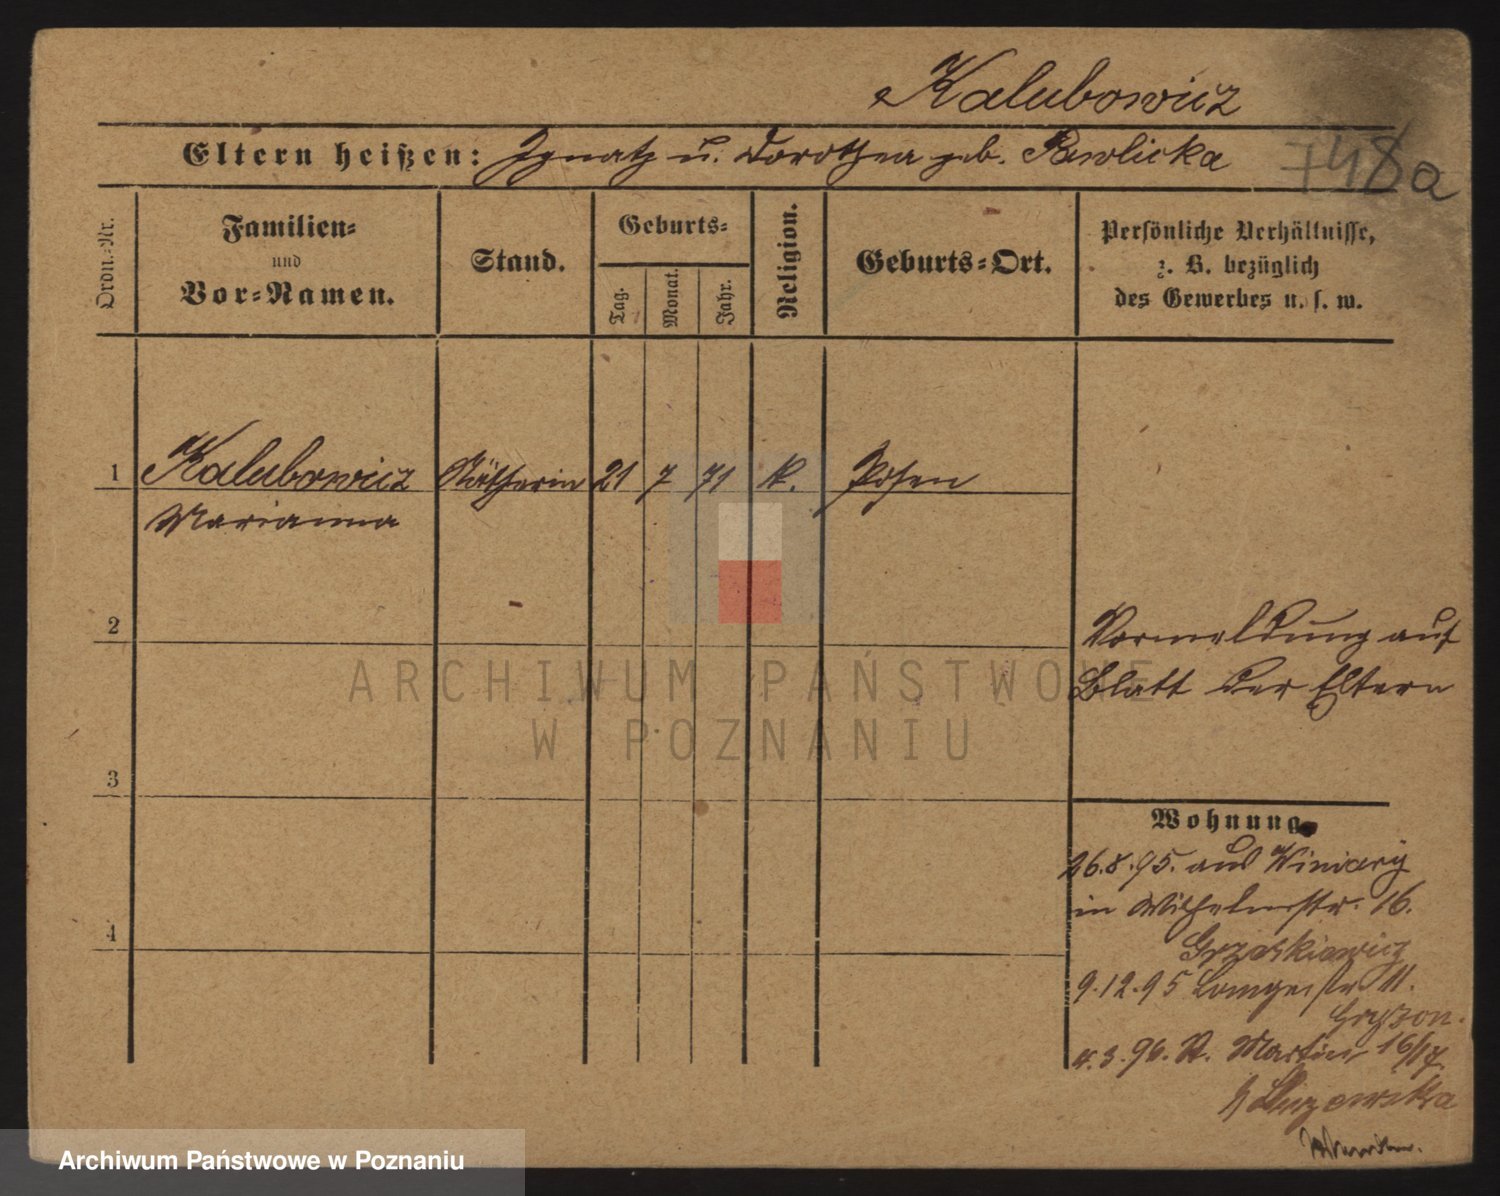 Kalubowicz
Eltern heißen: Ignatz u. Dorothea geb. Pawlicka
748a
Ordn.-Nr.
Familien-
und
Vor-Namen.
Stand.
Geburts-
Tag.
Monat.
Jahr.
Religion.
Geburts-Ort.
Persönliche Verhältnisse,
z. B. bezüglich
des Gewerbes u. s. w.
1 Kalubowicz Nätherin 21 7 71 k. Posen
Marianna
2
Vormeldung auf
Blatt der Eltern
3
Wohnung
26.8.95. aus Winiary
in Wilhelmstr. 16.
4
9.12.95 Langestr 11.
4.3.96. St. Martin 16/17
ARCHIWUM PAŃSTWOWE
W POZNANIU
Archiwum Państwowe w Poznaniu